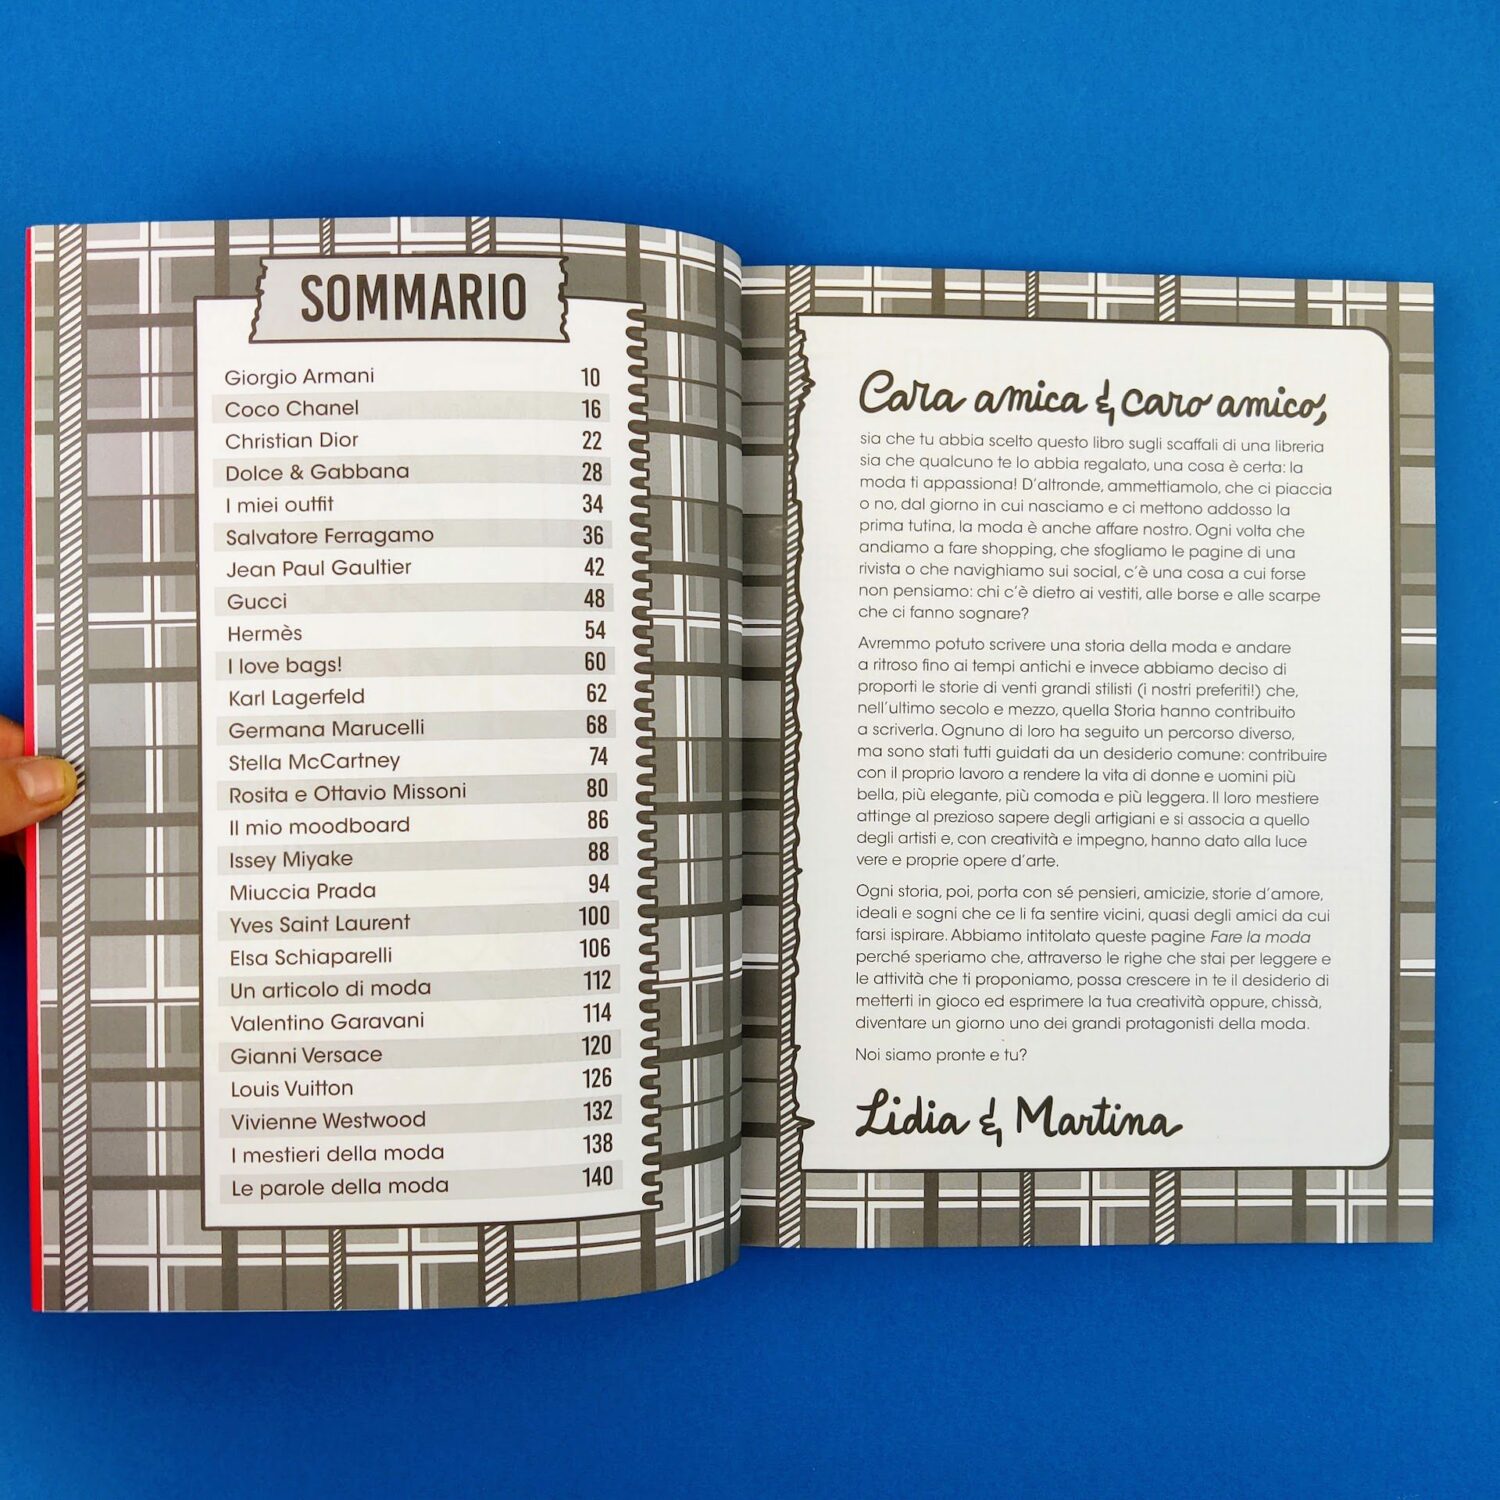 SOMMARIO
Giorgio Armani 10
Coco Chanel 16
Christian Dior 22
Dolce & Gabbana 28
I miei outfit 34
Salvatore Ferragamo 36
Jean Paul Gaultier 42
Gucci 48
Hermès 54
I love bags! 60
Karl Lagerfeld 62
Germana Marucelli 68
Stella McCartney 74
Rosita e Ottavio Missoni 80
Il mio moodboard 86
Issey Miyake 88
Miuccia Prada 94
Yves Saint Laurent 100
Elsa Schiaparelli 106
Un articolo di moda 112
Valentino Garavani 114
Gianni Versace 120
Louis Vuitton 126
Vivienne Westwood 132
I mestieri della moda 138
Le parole della moda 140
Cara amica & caro amico,
sia che tu abbia scelto questo libro sugli scaffali di una libreria
sia che qualcuno te lo abbia regalato, una cosa è certa: la
moda ti appassiona! D'altronde, ammettiamolo, che ci piaccia
o no, dal giorno in cui nasciamo e ci mettono addosso la
prima tutina, la moda è anche affare nostro. Ogni volta che
andiamo a fare shopping, che sfogliamo le pagine di una
rivista o che navighiamo sui social, c'è una cosa a cui forse
non pensiamo: chi c'è dietro ai vestiti, alle borse e alle scarpe
che ci fanno sognare?
Avremmo potuto scrivere una storia della moda e andare
a ritroso fino ai tempi antichi e invece abbiamo deciso di
proporti le storie di venti grandi stilisti (i nostri preferiti!) che,
nell'ultimo secolo e mezzo, quella Storia hanno contribuito
a scriverla. Ognuno di loro ha seguito un percorso diverso,
ma sono stati tutti guidati da un desiderio comune: contribuire
con il proprio lavoro a rendere la vita di donne e uomini più
bella, più elegante, più comoda e più leggera. Il loro mestiere
attinge al prezioso sapere degli artigiani e si associa a quello
degli artisti e, con creatività e impegno, hanno dato alla luce
vere e proprie opere d'arte.
Ogni storia, poi, porta con sé pensieri, amicizie, storie d'amore,
ideali e sogni che ce li fa sentire vicini, quasi degli amici da cui
farsi ispirare. Abbiamo intitolato queste pagine Fare la moda
perché speriamo che, attraverso le righe che stai per leggere e
le attività che ti proponiamo, possa crescere in te il desiderio di
metterti in gioco ed esprimere la tua creatività oppure, chissà,
diventare un giorno uno dei grandi protagonisti della moda.
Noi siamo pronte e tu?
Lidia & Martina